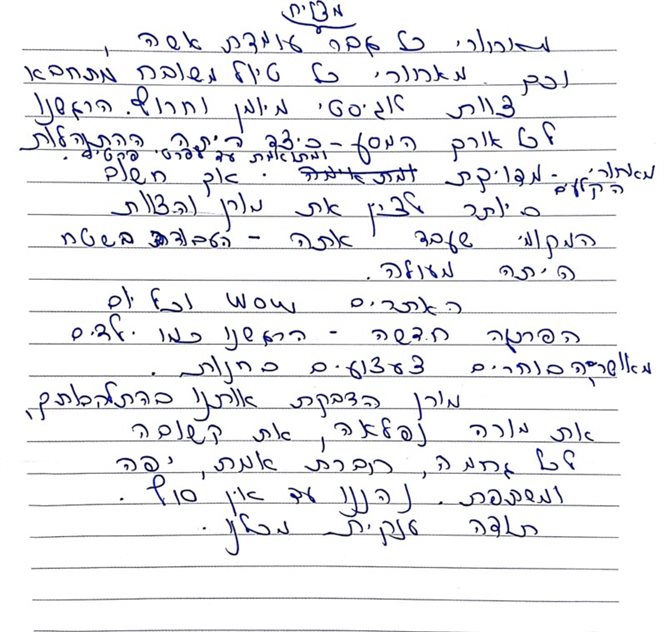 מצליח
מאחורי כל גבר עומדת אשה,
וכך מאחורי כל טיול משובח מתחבא
צוות לוגיסטי מיומן וחרוץ. הרגשנו
לכל אורך המסע - כיצד היתה ההתנהלות
ומתואמת עד לפרטי פרטים.
מאחורי הקלעים - מדויקת. אך חשוב
ביותר לציין את מורן והצוות
המקומי שעבד אתה - העבודה בשטח
היתה מעולה.
האתרים wow וכל יום
הפתעה חדשה - הרגשנו כמו ילדים
מאושרים הבוחרים צעצועים בחנות.
מורן הדבקת אותנו בהתלהבותך,
את מורה נפלאה, את קשובה
לכל גחמה, חברת אמת, יפה
ומשתפת. נהננו עד אין סוף.
תודה ענקית מכולנו.